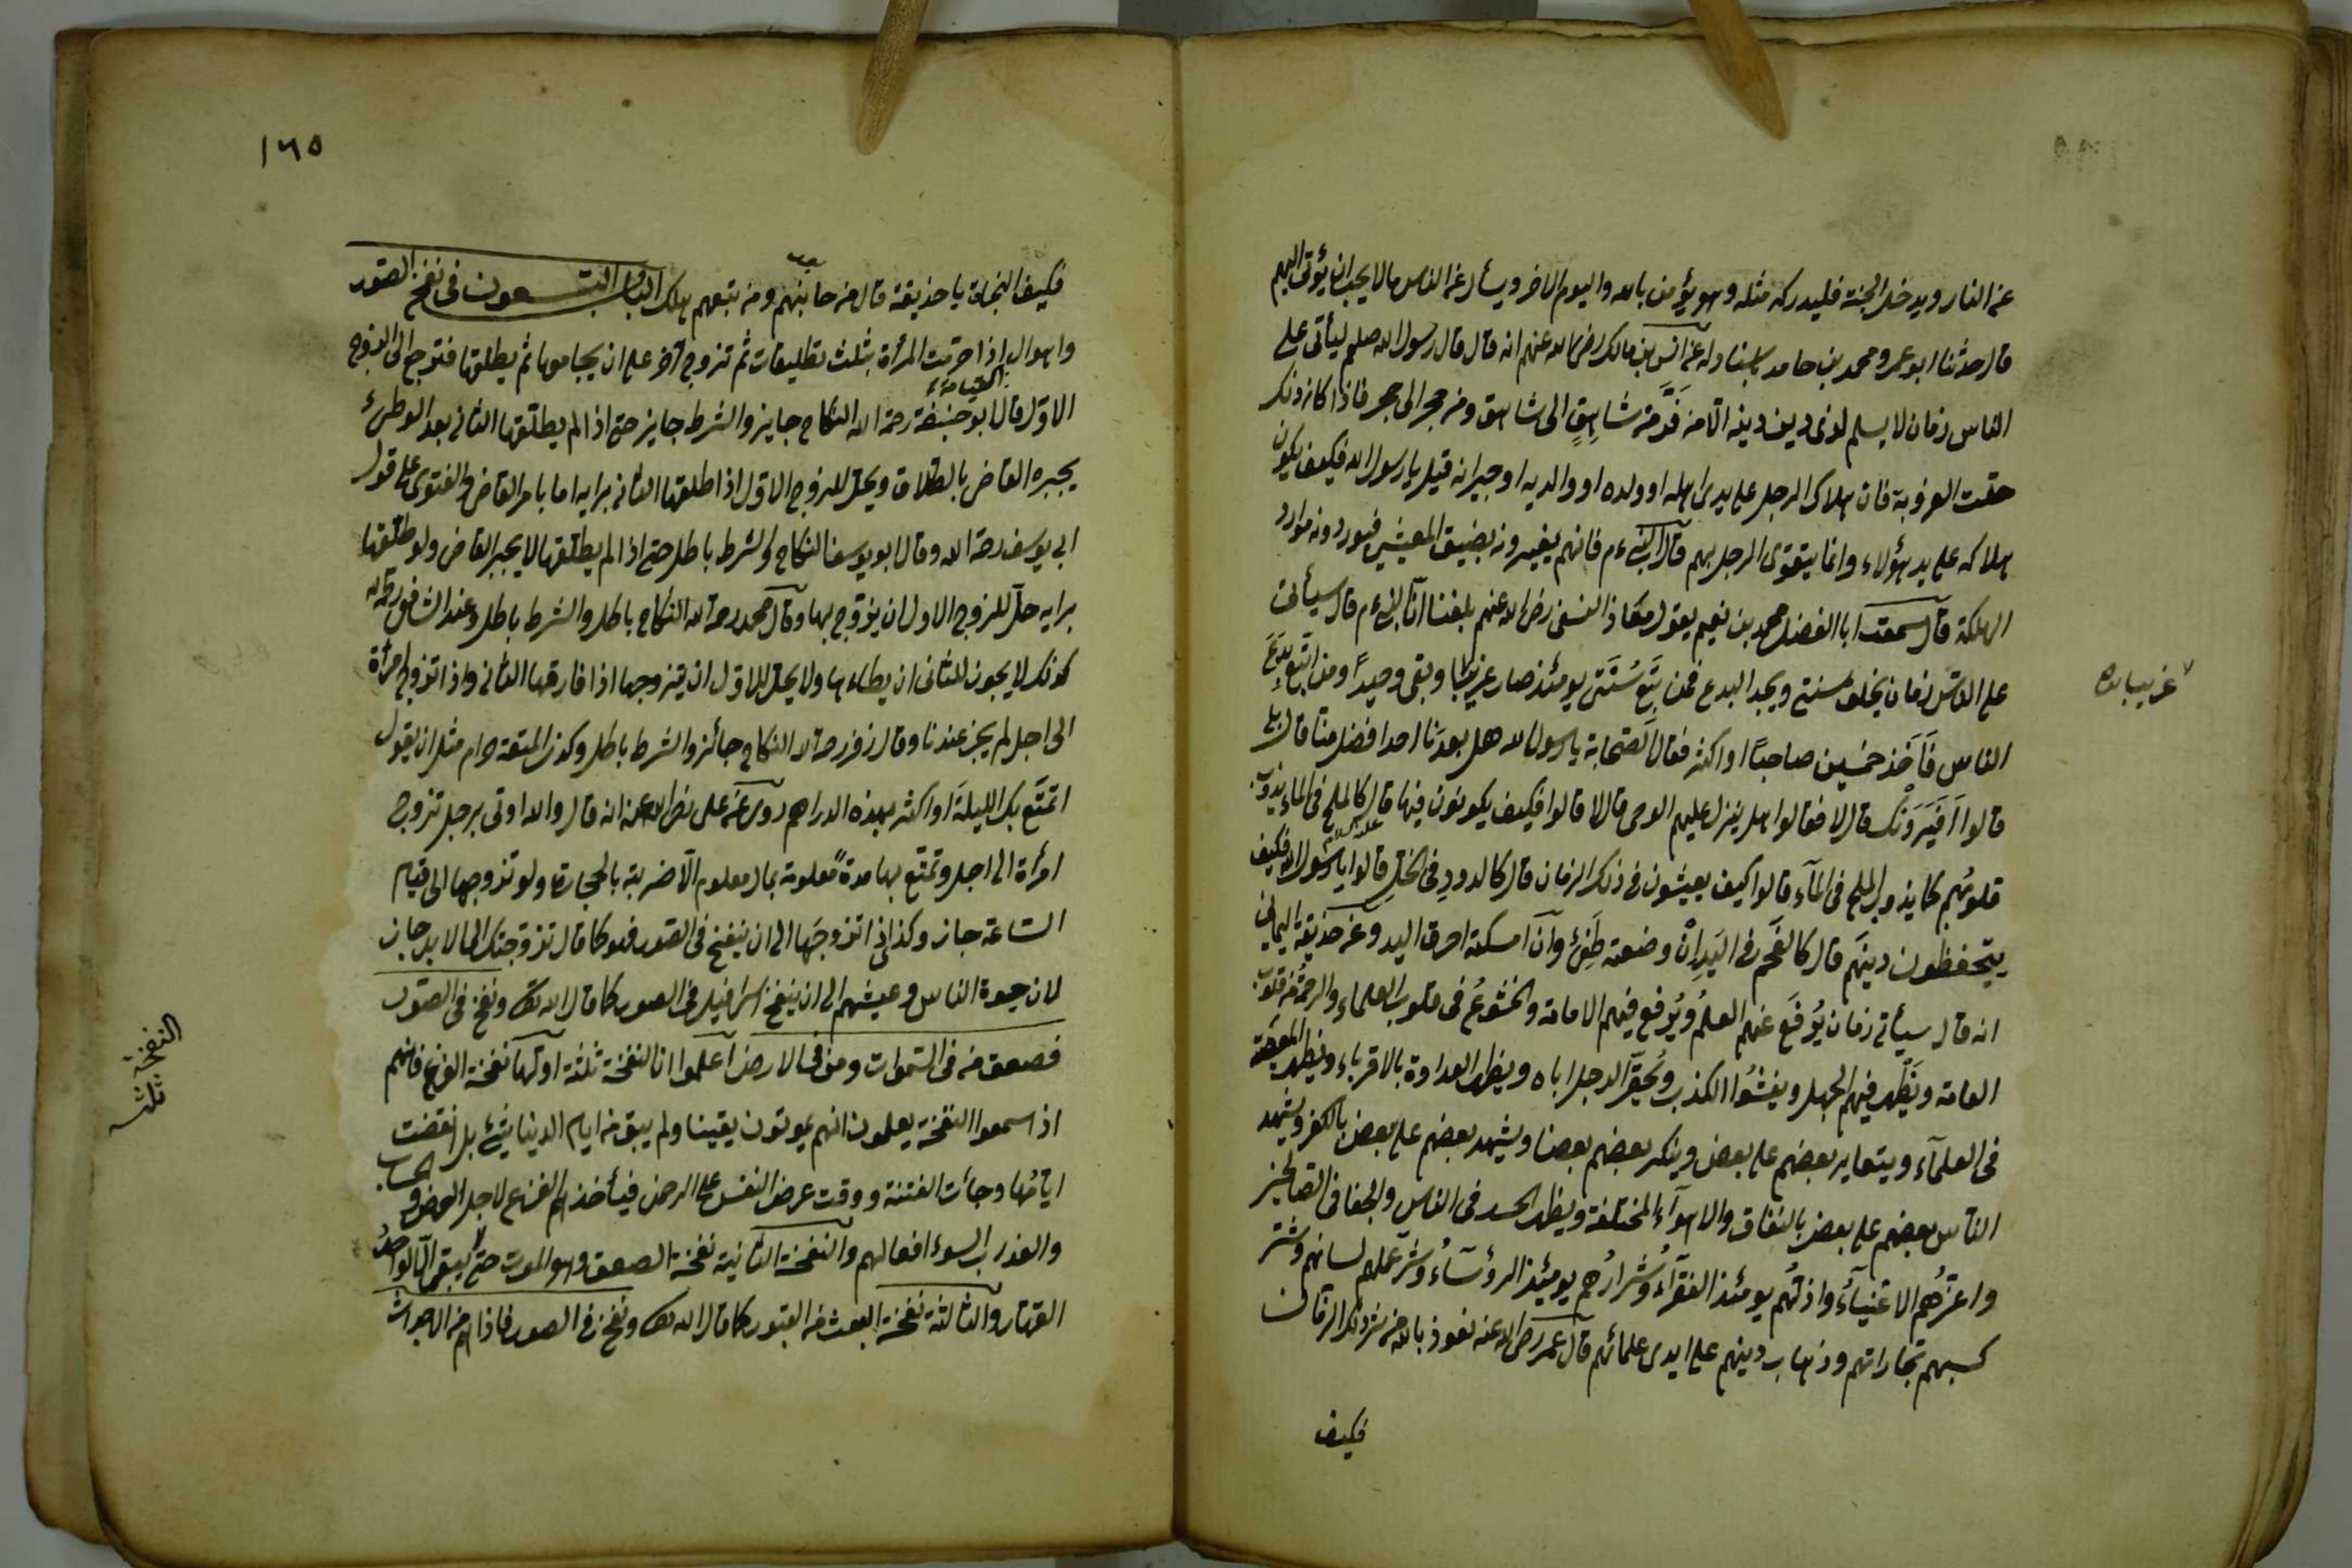 عن النار ويدخل الجنة فليدركه مثله وهو يؤمن بالله واليوم الاخر ويسأل عن الناس مالا يحب ان يؤتى اليهم
قال حدثنا ابو عمرو محمد بن حامد باسناده عن انس بن مالك رضى الله عنهم انه قال قال رسول الله صلعم ليأتى على
الناس زمان لا يسلم لذى دين دينه الا من فر من شاهق الى شاهق ومن حجر الى حجر فاذا كان ذلك
حلت العزوبة فان هلاك الرجل على يدى اهله او ولده او والديه او جيرانه قيل يا رسول الله فكيف يكون
هلاكه على يد هؤلاء وانما يتقوى الرجل بهم قال النبى ءم فانهم يغيرونه بضيق المعيشة فيوردونه موارد
الهلكة قال سمعت ابا الفضل محمد بن نعيم يقول معاذ النسفى رضى الله عنهم بلغنا ان النبى ءم قال سيأتى
على الناس زمان يخلق سنتى ويجد البدع فمن يتبع سنتى يومئذ صار غريبا وبقى وحيدا ومن اتبع بدع
الناس فأخذ خمسين صاحبًا او اكثر فقال الصحابة يا رسول الله هل بعدنا احدا افضل منا قال بلى
قالوا افيرونك قال لا فقالوا هل ينزل عليهم الوحى قال لا قالوا فكيف يكونون فيها قال كالملح فى الماء يذوب
قلوبهم كما يذوب الملح فى الماء قالوا كيف يعيشون فى ذلك الزمان قال كالدود فى الخل قالوا يا رسول الله فكيف
عليه السلام
يتحفظون دينهم قال كالفحم فى اليد ان وضعته طفئ وان امسكته احرق اليد وعن حذيفة اليمانى
انه قال سيأتى زمان يرفع عنهم العلم ويرفع فيهم الامانة والخشوع فى قلوب العلماء والرحمة من قلوب
العامة ويظهر فيهم الجهل ويفشوا الكذب ويحقر الرجل اباه ويظهر العداوة بالاقرباء ويظهر
فى العلماء ويتعاير بعضهم على بعض وينكر بعضهم بعضا ويشهد بعضهم على بعض بالكفر ويشهد
الناس بعضهم على بعض بالنفاق والاهواء المختلفة ويظهر الحسد فى الناس والجفا فى الصالحين
واعزهم الاغنياء واذلهم يومئذ الفقراء وشرارهم يومئذ الرؤساء وشر عملهم لسانهم وشر
كسبهم تجاراتهم وذهاب دينهم على ايدى علمائهم قال عمر رضى الله عنه نعوذ بالله من شر ذلك الزمان
فكيف
١٦٥
فكيف النجاة يا حذيفة قال من جانبهم ومن يتبعهم هلك الباب التسعون فى نفخ الصور
واهوال القيامة اذا حرمت المرأة بثلث تطليقات ثم تزوج آخر على ان يجامعها ثم يطلقها فترجع الى الزوج
الاول قال ابو حنيفة رحمة الله النكاح جايز والشرط جايز حتى اذا لم يطلقها الثانى بعد الوطئ
يجبره القاضى بالطلاق ويحل للزوج الاول اذا طلقها الثانى برايه اما بامر القاضى والفتوى على قول
ابى يوسف رحمة الله وقال ابو يوسف النكاح والشرط باطل حتى اذا لم يطلقها لا يجبر القاضى ولو طلقها
برايه حل للزوج الاول ان يزوج بها وقال محمد رحمة الله النكاح باطل والشرط باطل وعند الشافعى رحمه الله
كذلك لا يجوز للثانى ان يطاءها ولا يحل للاول ان يتزوجها اذا فارقها الثانى واذا تزوج امرأة
الى اجل لم يجز عندنا وقال زفر رحمة الله النكاح جائز والشرط باطل وكذلك المتعة حرام مثل ان يقول
اتمتع بك الليلة او اكثر بهذه الدراهم روى عن على رضى الله عنه انه قال والله اوتى برجل تزوج
امرأة الى اجل وتمتع بها مدة معلومة بمال معلوم الا ضربته بالحجارة ولو تزوجها الى قيام
الساعة جاز وكذا اذا تزوجها الى ان ينفخ فى الصور فهو كما قال تزوجتك الى الابد جاز
لان حيوة الناس وعيشهم الى ان ينفخ اسرافيل فى الصور كما قال الله تعالى ونفخ فى الصور
فصعق من فى السموات ومن فى الارض اعلموا ان النفخة ثلثة اولها نفخة الفزع فانهم
اذ اسمعوا النفخة يعلمون انهم يموتون يقينا ولم يبق من ايام الدنيا شئ بل انقضت
ايامها وجأت الفتنة ووقت عرض النفس على الرحمن فيأخذهم الفزع لاجل العرض والحساب
والعذاب السوء افعالهم والنفخة الثانية نفخة الصعق وهو الموت حتى لا يبقى الا الواحد
القهار والثالثة نفخة البعث من القبور كما قال الله تعالى ونفخ فى الصور فاذا هم من الاجداث
النفخة
ثلث